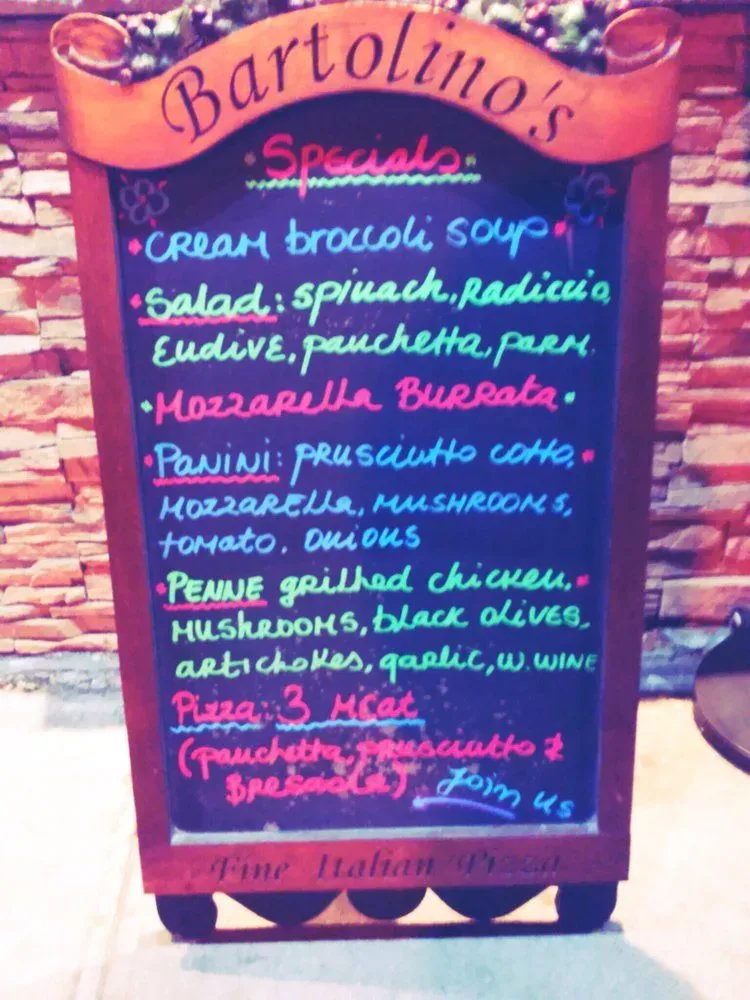 Bartolino's
Specials
CREAM broccoli soup
Salad: spinach, Radiccio,
ENDIVE, panchetta, parm.
Mozzarella BURRata
PANINI: PRUSCIUTTO cotto,
MOZZARELLA, MUSHROOMS,
tomato. ONIONS
PENNE grilled chicken,
MUSHROOMS, black olives,
artichokes, garlic, W. WINE
Pizza: 3 MEat
(panchetta, prusciutto &
Bresaola) Join us
Fine Italian Pizza